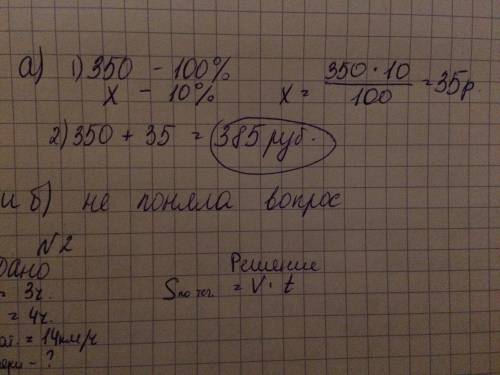 а) 1) 350 - 100%
х - 10%
х = 350 · 10 / 100 = 35р.
2) 350 + 35 = 385 руб.
и б) не поняла вопрос
№2
Дано
= 3ч.
= 4ч.
= 14 км/ч
- ?
Решение
S по теч. = V · t